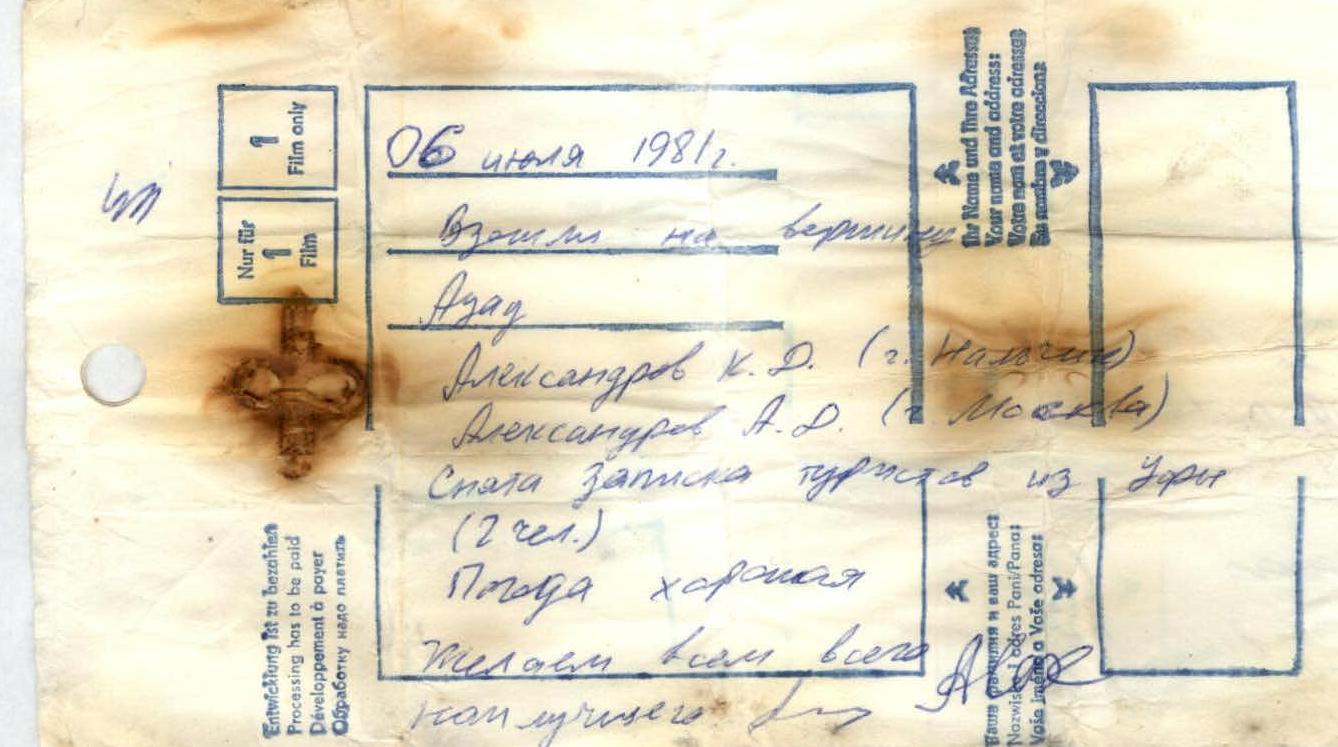 06 июля 1981г.
Взошли на вершину
Азад
Александров К. Д. (г. Нальчик)
Александров А. Д. (г. Москва)
Снята записка туристов из Уфы
(2 чел.)
Погода хорошая
Желаем всем всего
наилучшего
Nur für
1
Film
1
Film only
Entwicklung ist zu bezahlen
Processing has to be paid
Développement à payer
Обработку надо платить
Ihr Name und Ihre Adresse:
Your name and address:
Votre nom et votre adresse:
Su nombre y direccion:
Ваша фамилия и ваш адрес:
Nazwisko i adres Pani/Pana:
Vaše jméno a Vaše adresa: